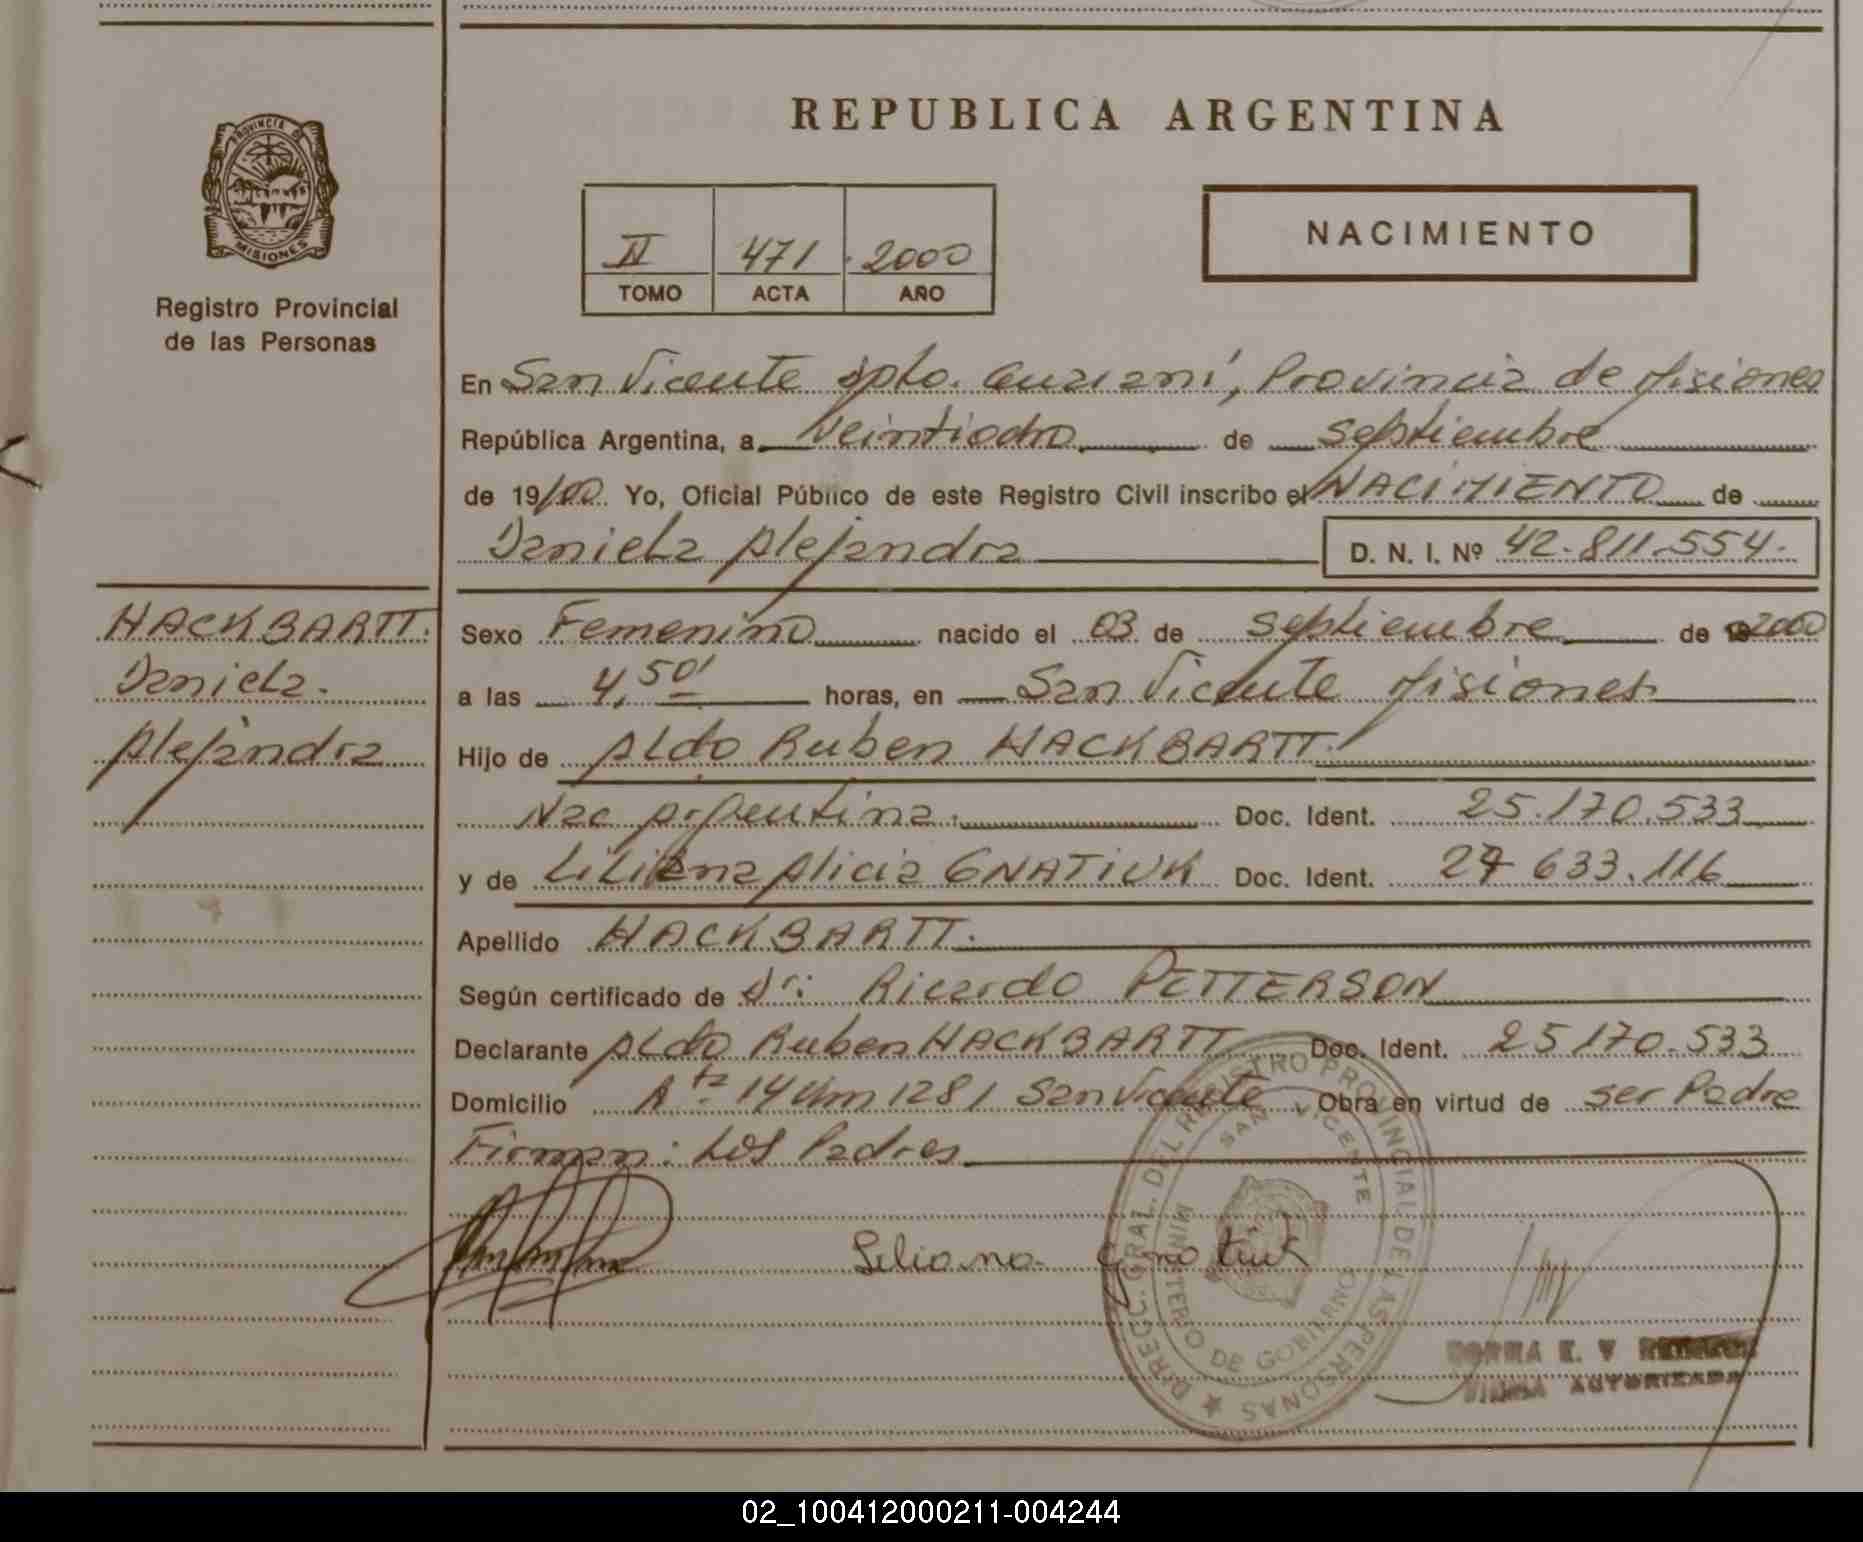 REPUBLICA ARGENTINA
PROVINCIA DE
MISIONES
Registro Provincial
de las Personas
II 471 2000
TOMO ACTA AÑO
NACIMIENTO
En San Vicente dpto. Guaraní, Provincia de Misiones
República Argentina, a veintiocho de septiembre
de 19/00. Yo, Oficial Público de este Registro Civil inscribo el NACIMIENTO de
Daniela Alejandra D. N. I. Nº 42.811.554.
HACKBARTT.
Daniela.
Alejandra
Sexo Femenino nacido el 03 de septiembre de 2000
a las 4,50' horas, en San Vicente Misiones
Hijo de Aldo Ruben HACKBARTT.
Nac Argentina. Doc. Ident. 25.170.533
y de Liliana Alicia GNATIUK Doc. Ident. 27 633.116
Apellido HACKBARTT.
Según certificado de Dr: Ricardo PETTERSON
Declarante Aldo Ruben HACKBARTT Doc. Ident. 25 170.533
Domicilio R ta 14 Km 1281 San Vicente Obra en virtud de ser Padre
Firman: Los Padres
Liliana Gnatiuk
DIRECC. GRAL. DEL REGISTRO PROVINCIAL DE LAS PERSONAS
SAN VICENTE
MINISTERIO DE GOBIERNO
NORMA E. V
FIRMA AUTORIZADA
02_100412000211-004244